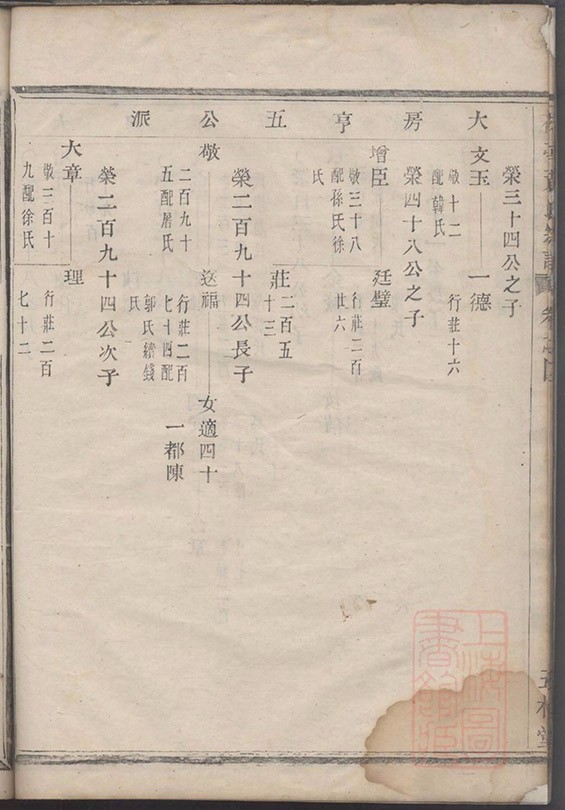 大房亨五公派
榮三十四公之子
文玉
敬十二
配韓氏
一德
行莊十六
榮四十八公之子
增臣
敬三十八
配孫氏徐
氏
廷璧
行莊二百
廿六
莊二百五
十三
榮二百九十四公長子
敬
二百九十
五配屠氏
送福
行莊二百
七十四配
郭氏續錢
女適四十
一都陳
榮二百九十四公次子
大章
敬三百十
九配徐氏
理
行莊二百
七十二
上海圖
書館藏